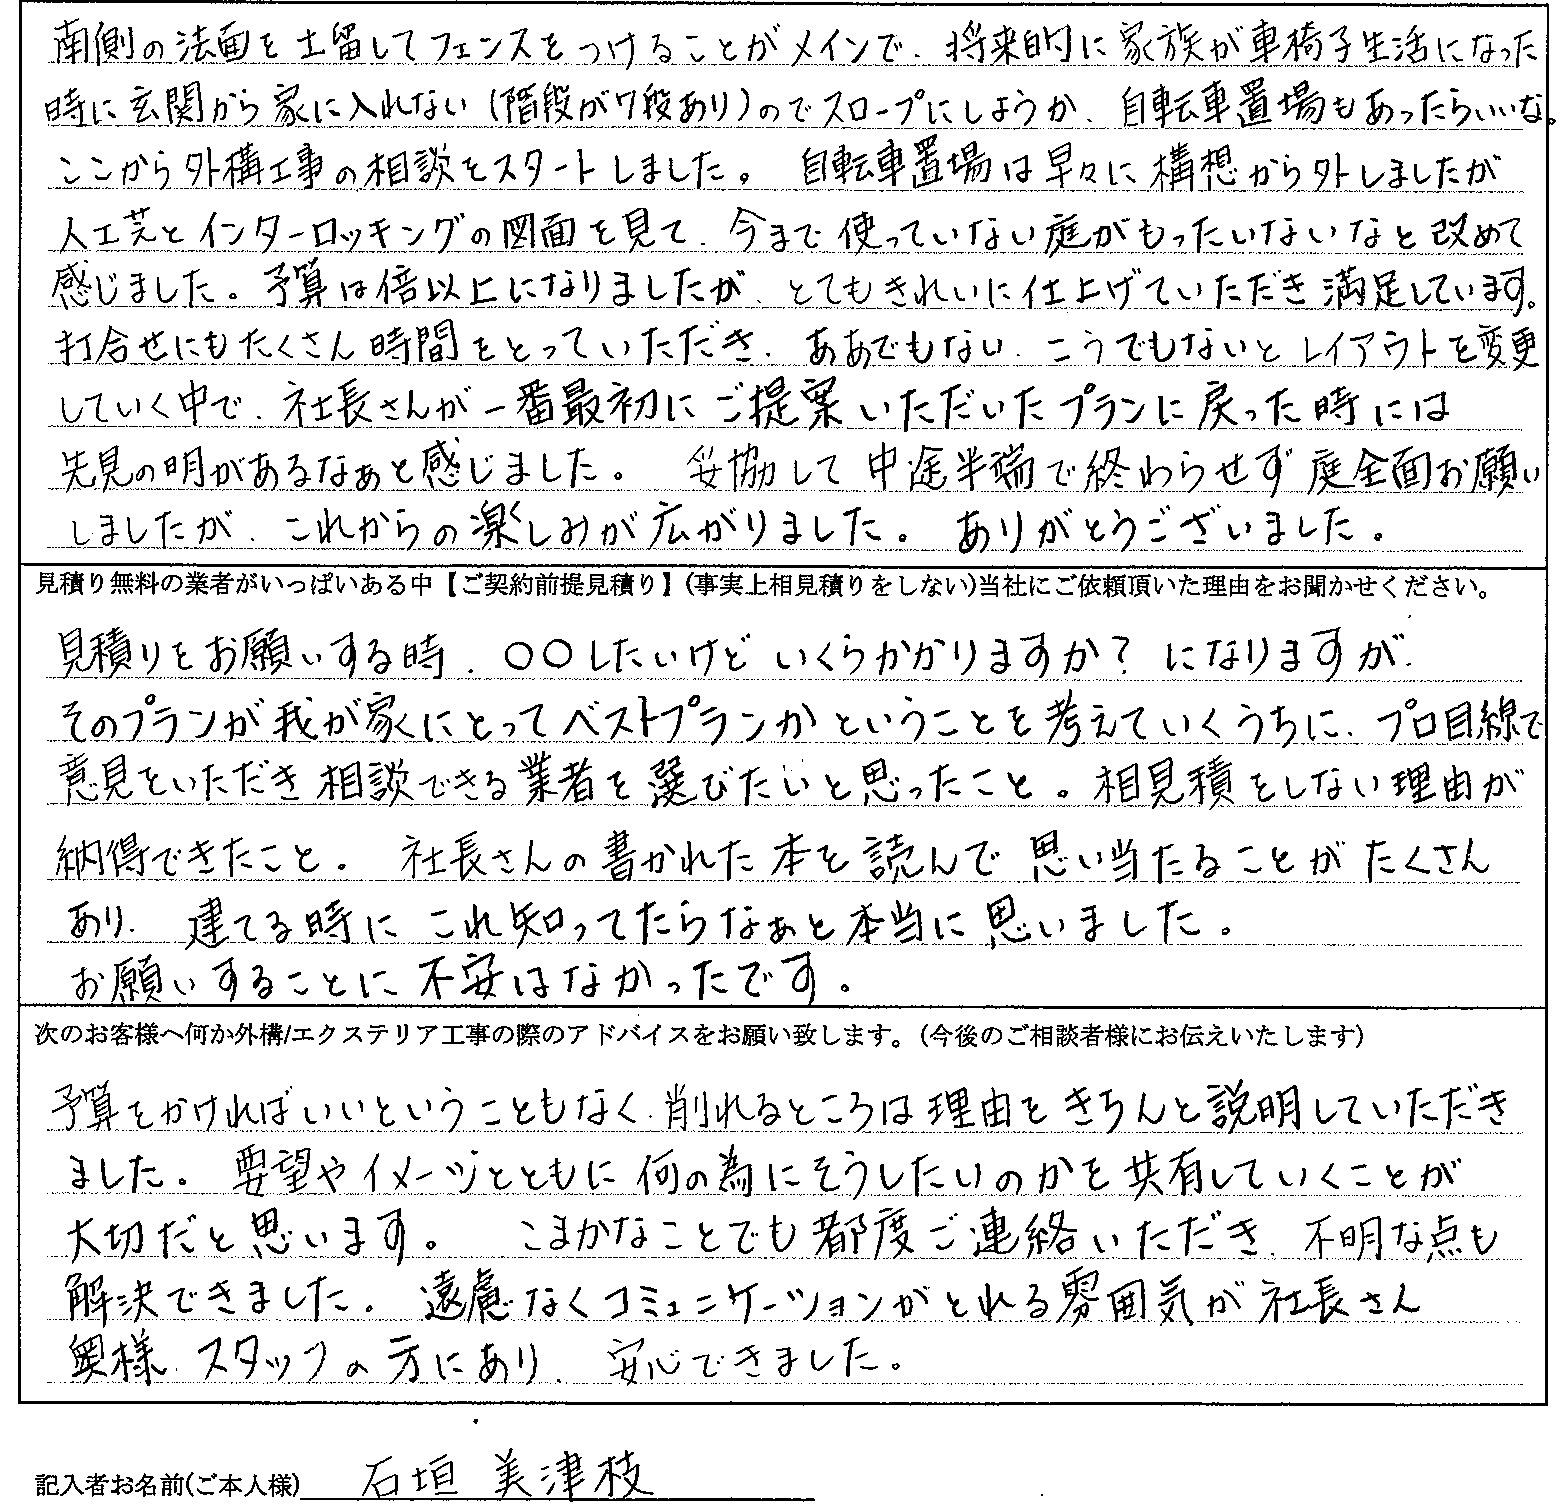 南側の法面を土留してフェンスをつけることがメインで、将来的に家族が車椅子生活になった
時に玄関から家に入れない(階段が7段あり)のでスロープにしようか、自転車置場もあったらいいな。
ここから外構工事の相談をスタートしました。 自転車置場は早々に構想から外しましたが
人工芝とインターロッキングの図面を見て、今まで使っていない庭がもったいないなと改めて
感じました。予算は倍以上になりましたが、とてもきれいに仕上げていただき満足しています。
打合せにもたくさん時間をとっていただき、ああでもない、こうでもないとレイアウトを変更
していく中で、社長さんが一番最初にご提案いただいたプランに戻った時には
先見の明があるなぁと感じました。 妥協して中途半端で終わらせず庭全面お願い
しましたが、これからの楽しみが広がりました。 ありがとうございました。
見積り無料の業者がいっぱいある中【ご契約前提見積り】(事実上相見積りをしない)当社にご依頼頂いた理由をお聞かせください。
見積りをお願いする時、〇〇したいけどいくらかかりますか？になりますが、
そのプランが我が家にとってベストプランかということを考えていくうちに、プロ目線で
意見をいただき相談できる業者を選びたいと思ったこと。相見積をしない理由が
納得できたこと。 社長さんの書かれた本を読んで思い当たることがたくさん
あり、建てる時にこれ知ってたらなぁと本当に思いました。
お願いすることに不安はなかったです。
次のお客様へ何か外構/エクステリア工事の際のアドバイスをお願い致します。(今後のご相談者様にお伝えいたします)
予算をかければいいということもなく、削れるところは理由をきちんと説明していただき
ました。要望やイメージとともに何の為にそうしたいのかを共有していくことが
大切だと思います。 こまかなことでも都度ご連絡いただき、不明な点も
解決できました。遠慮なくコミュニケーションがとれる雰囲気が社長さん
奥様、スタッフの方にあり、安心できました。
記入者お名前(ご本人様) 石垣 美津枝